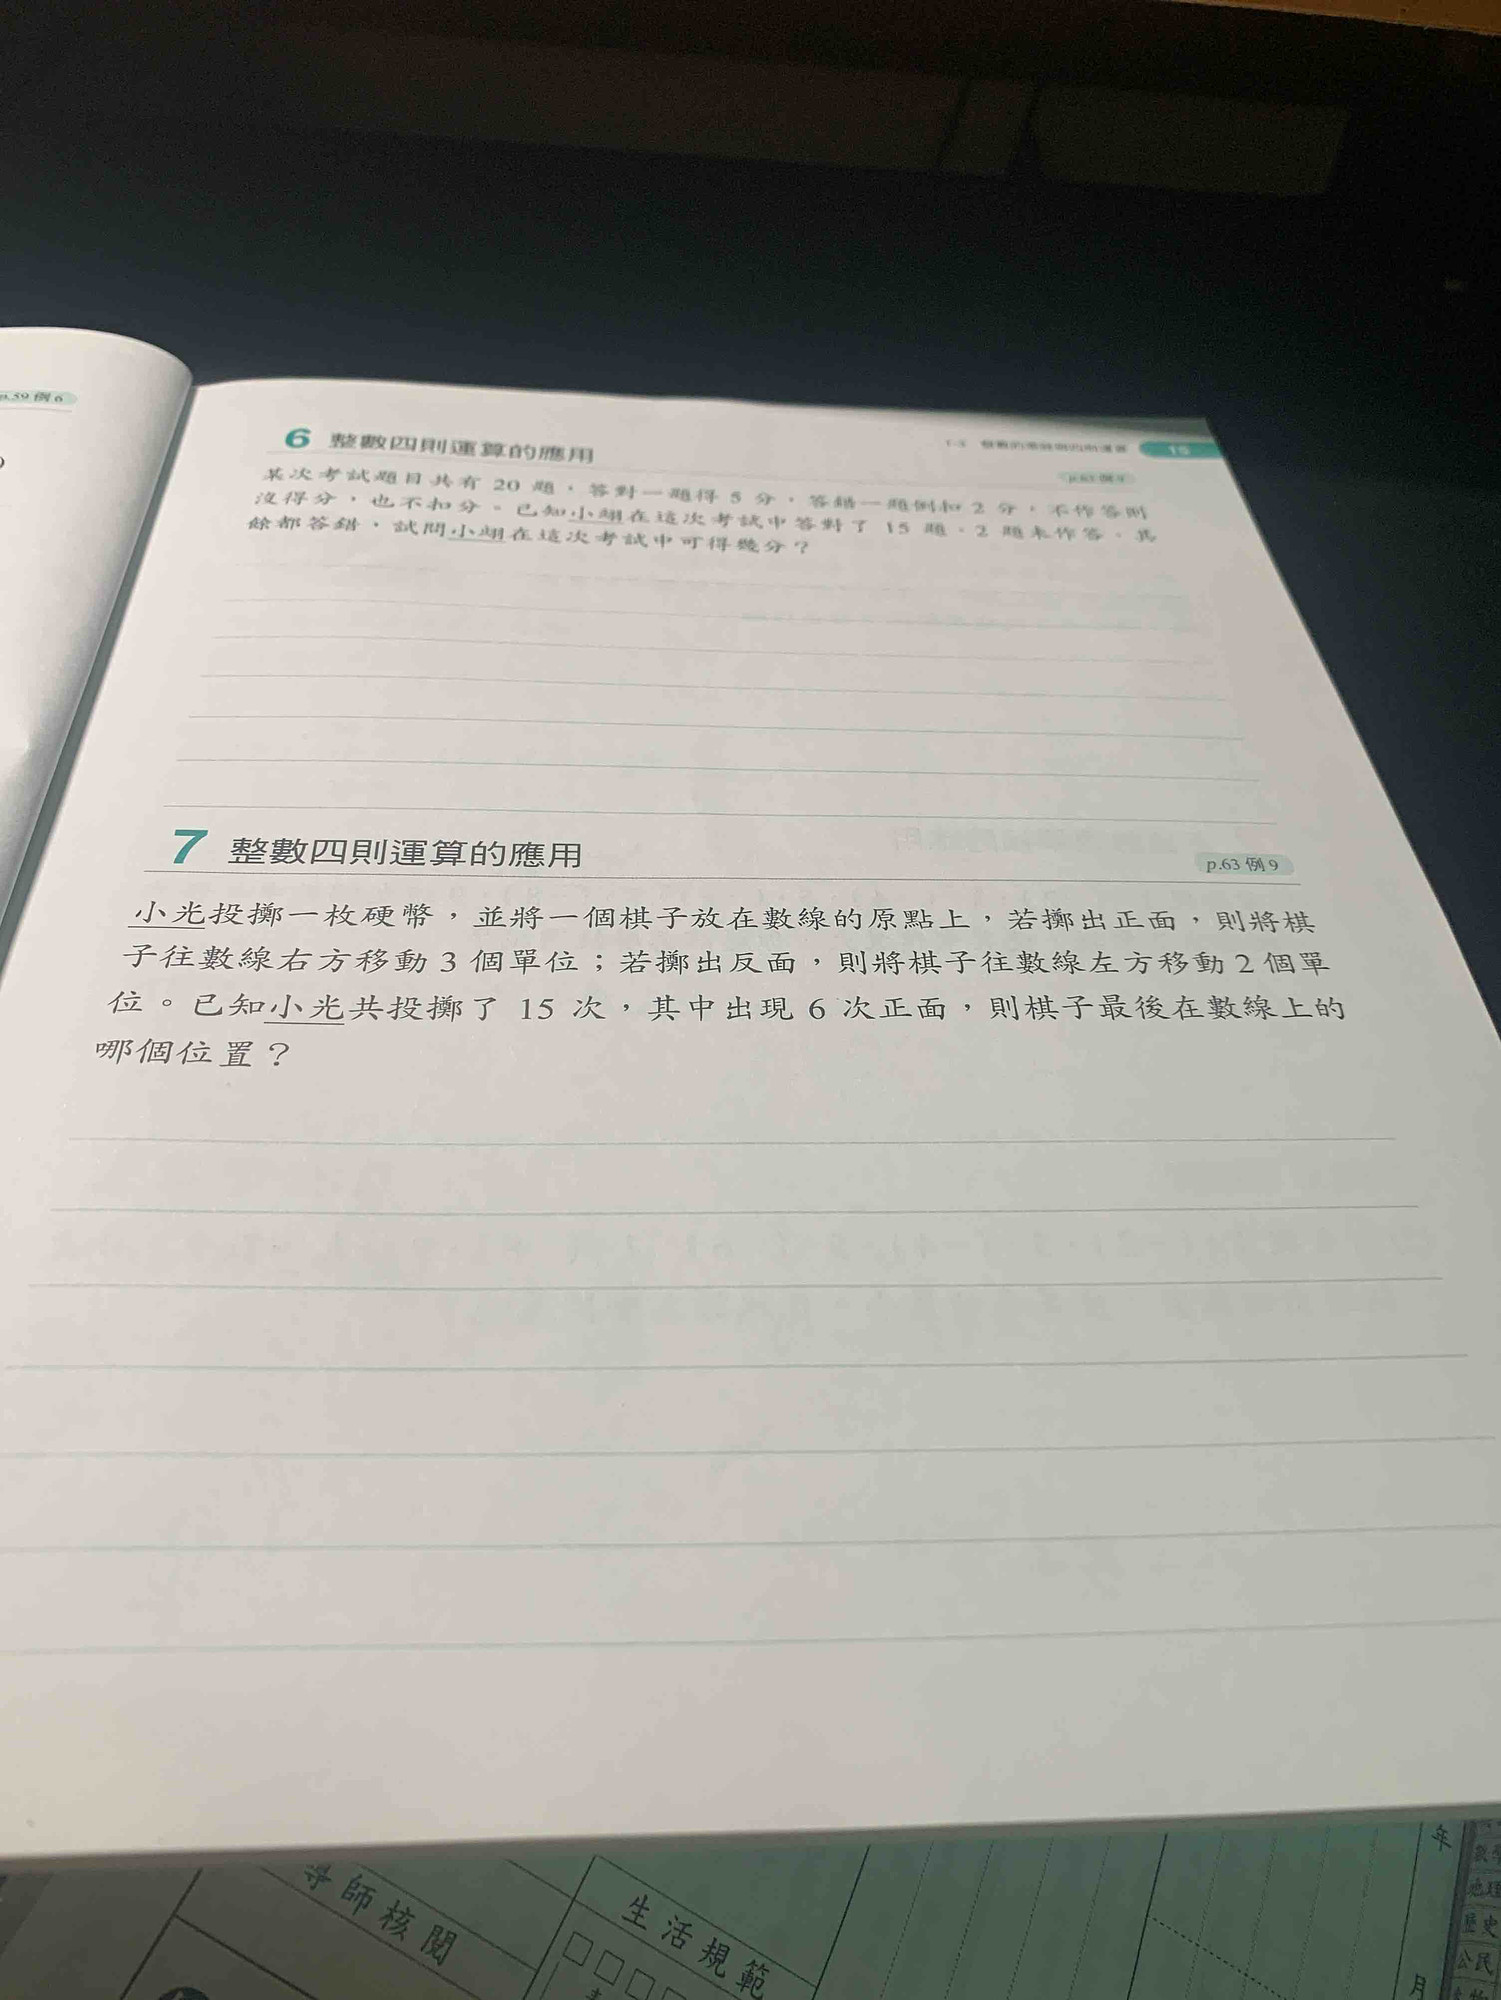 p.59 例6
1-3 整數的乘除與四則運算 15
6 整數四則運算的應用
p.63 例9
某次考試題目共有 20 題,答對一題得 5 分,答錯一題倒扣 2 分,不作答則
沒得分,也不扣分。已知小翊在這次考試中答對了 15 題,2 題未作答,其
餘都答錯,試問小翊在這次考試中可得幾分?
7 整數四則運算的應用
p.63 例9
小光投擲一枚硬幣,並將一個棋子放在數線的原點上,若擲出正面,則將棋
子往數線右方移動 3 個單位;若擲出反面,則將棋子往數線左方移動 2 個單
位。已知小光共投擲了 15 次,其中出現 6 次正面,則棋子最後在數線上的
哪個位置?
導師核閱
生活規範
年
月
數學
地理
歷史
公民